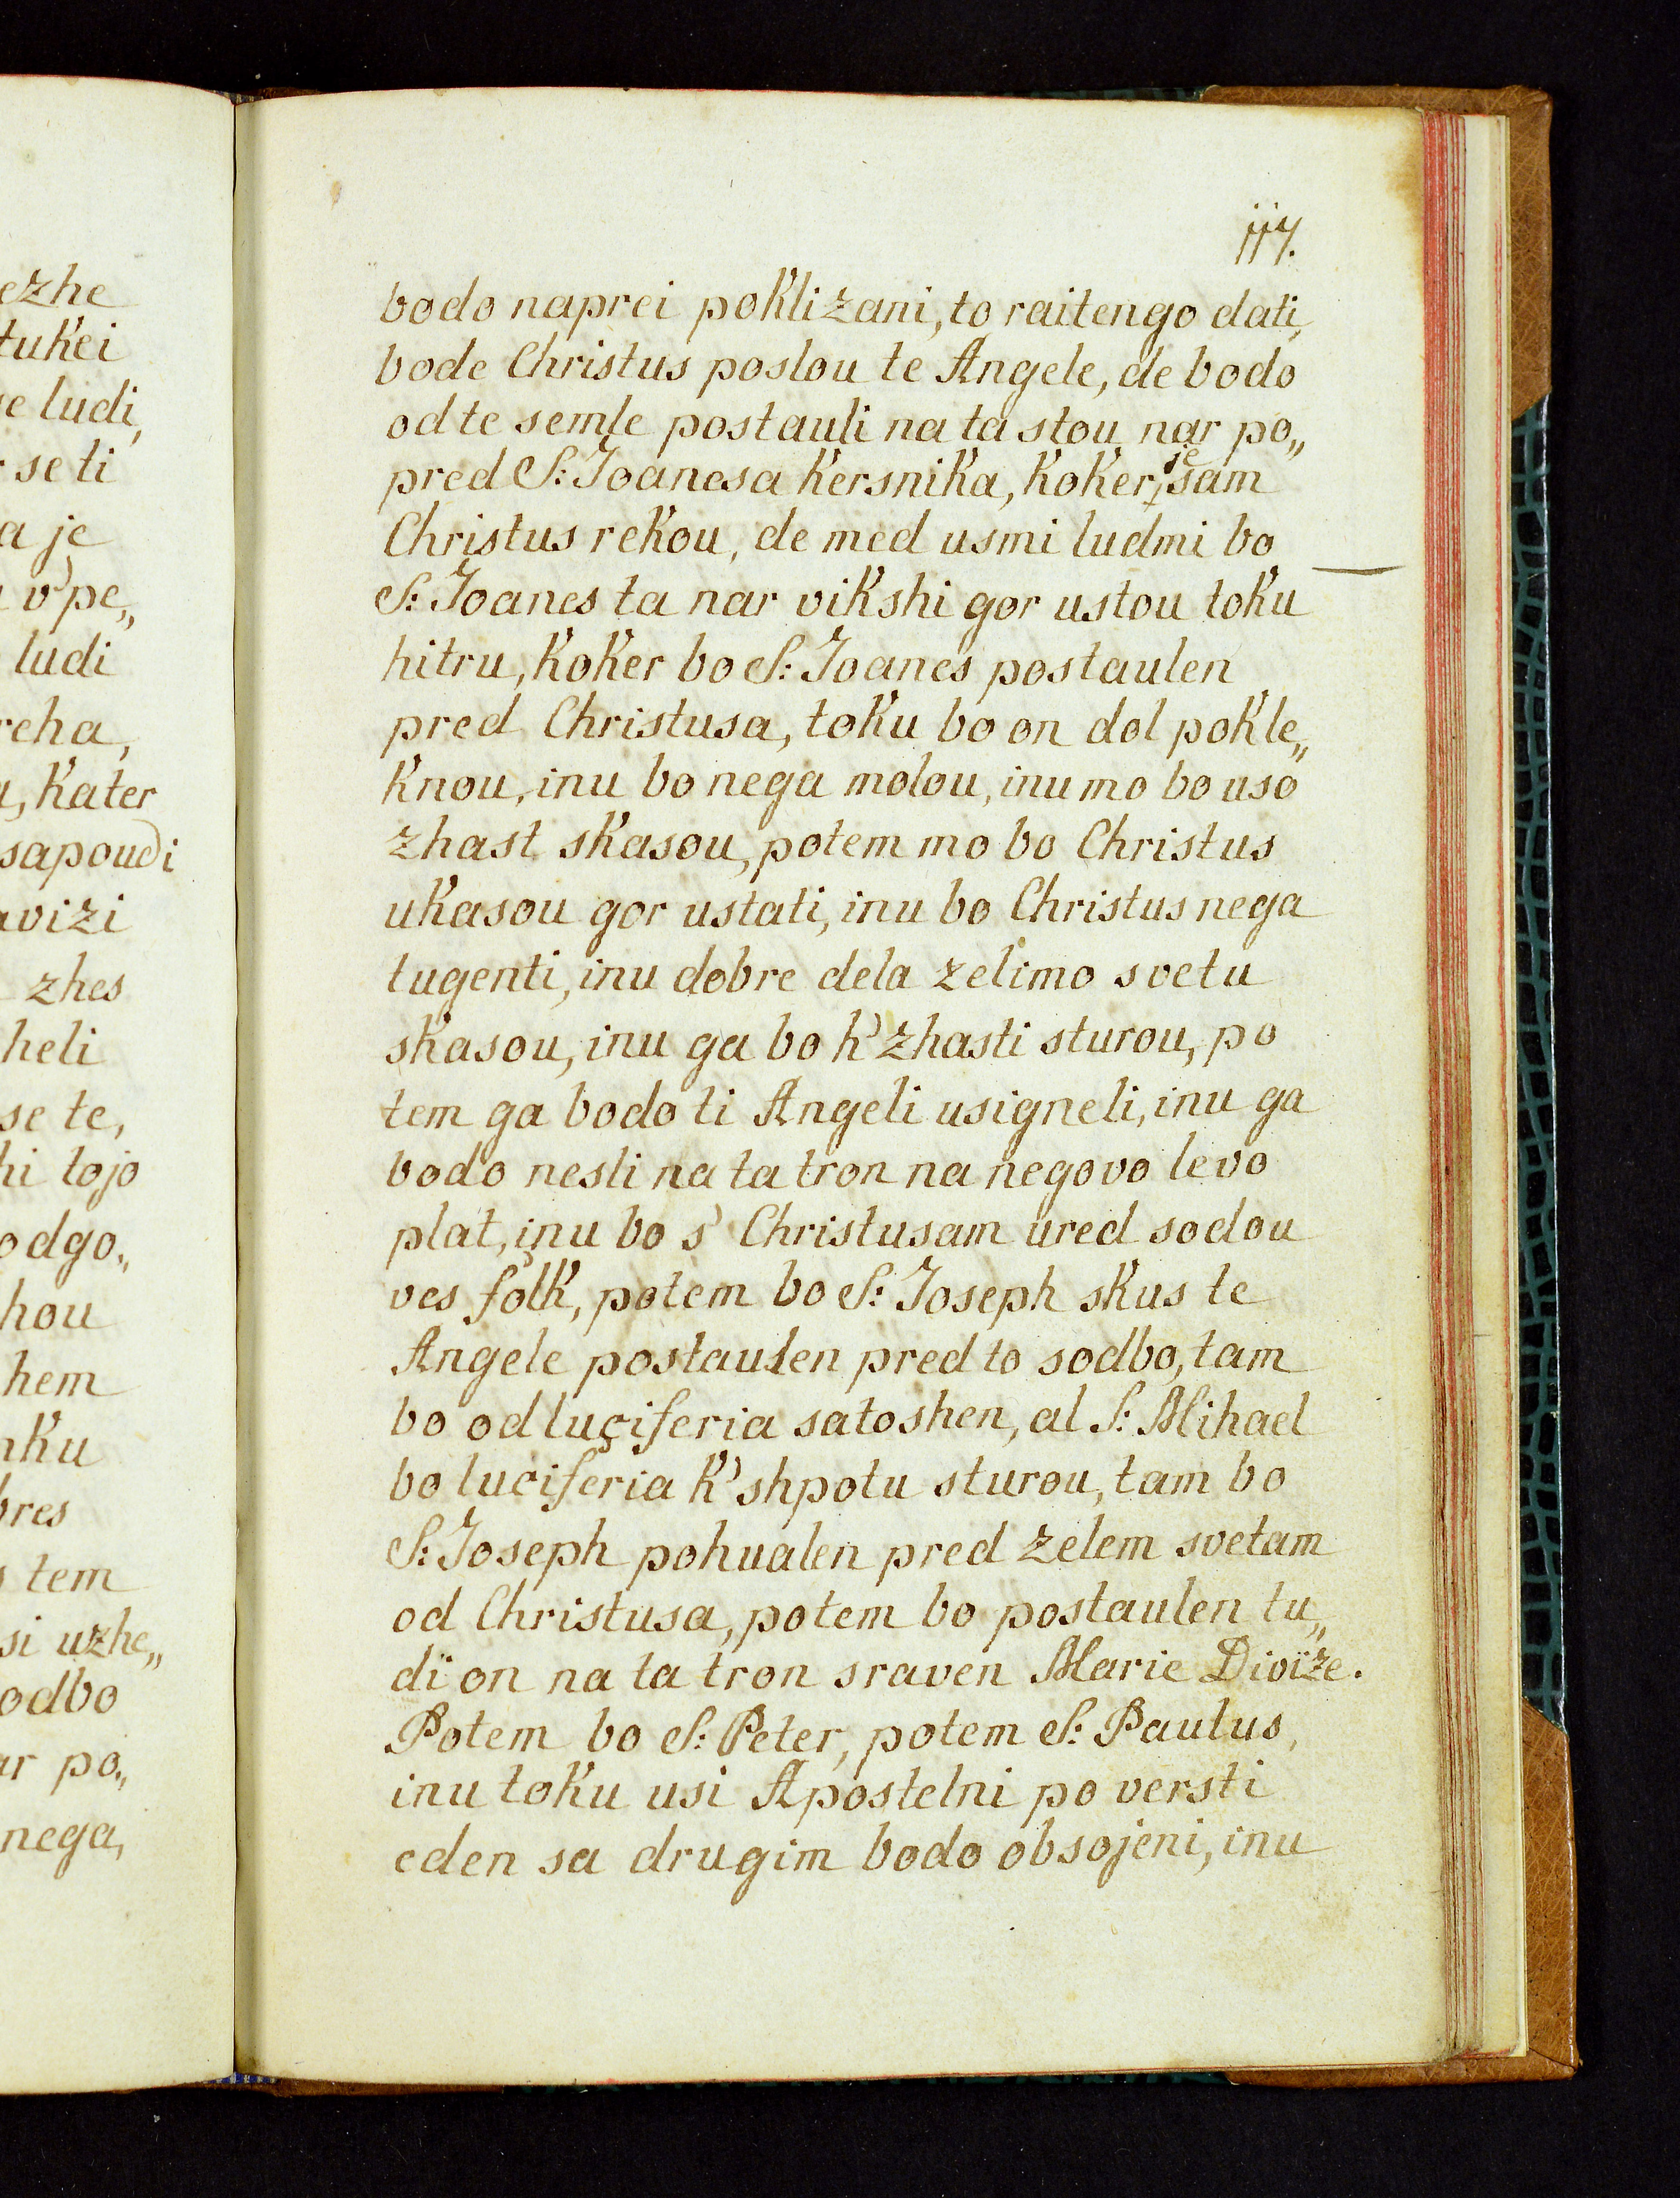 ezhe
tukei
e ludi,
se ti
a je
v' pe„
ludi
reha,
kater
sapoudi
vizi
zhes
heli
se te,
hi tojo
odgo„
hou
hem
nku
bres
tem
si uzhe„
odbo
ar po„
nega,
117.
bodo naprei poklizani, to raitengo dati,
bode Christus poslou te Angele, de bodo
od te semle postauli na ta stou nar po„
pred S: Joanesa kersnika, koker je sam
Christus rekou, de med usmi ludmi bo
S: Joanes ta nar vikshi gor ustou toku
hitru, koker bo S: Joanes postaulen
pred Christusa, toku bo on dol pokle„
knou, inu bo nega molou, inu mo bo uso
zhast skasou, potem mo bo Christus
ukasou gor ustati, inu bo Christus nega
tugenti, inu dobre dela zelimo svetu
skasou, inu ga bo k' zhasti sturou, po
tem ga bodo ti Angeli usigneli, inu ga
bodo nesli na ta tron na negovo levo
plat, inu bo s' Christusam ured sodou
ves folk, potem bo S: Joseph skus te
Angele postaulen pred to sodbo, tam
bo od luciferia satoshen, al S: Mihael
bo luciferia k' shpotu sturou, tam bo
S: Joseph pohualen pred zelem svetam
od Christusa, potem bo postaulen tu„
di on na ta tron sraven Marie Divize.
Potem bo S: Peter, potem S: Paulus,
inu toku usi Apostelni po versti
eden sa drugim bodo obsojeni, inu